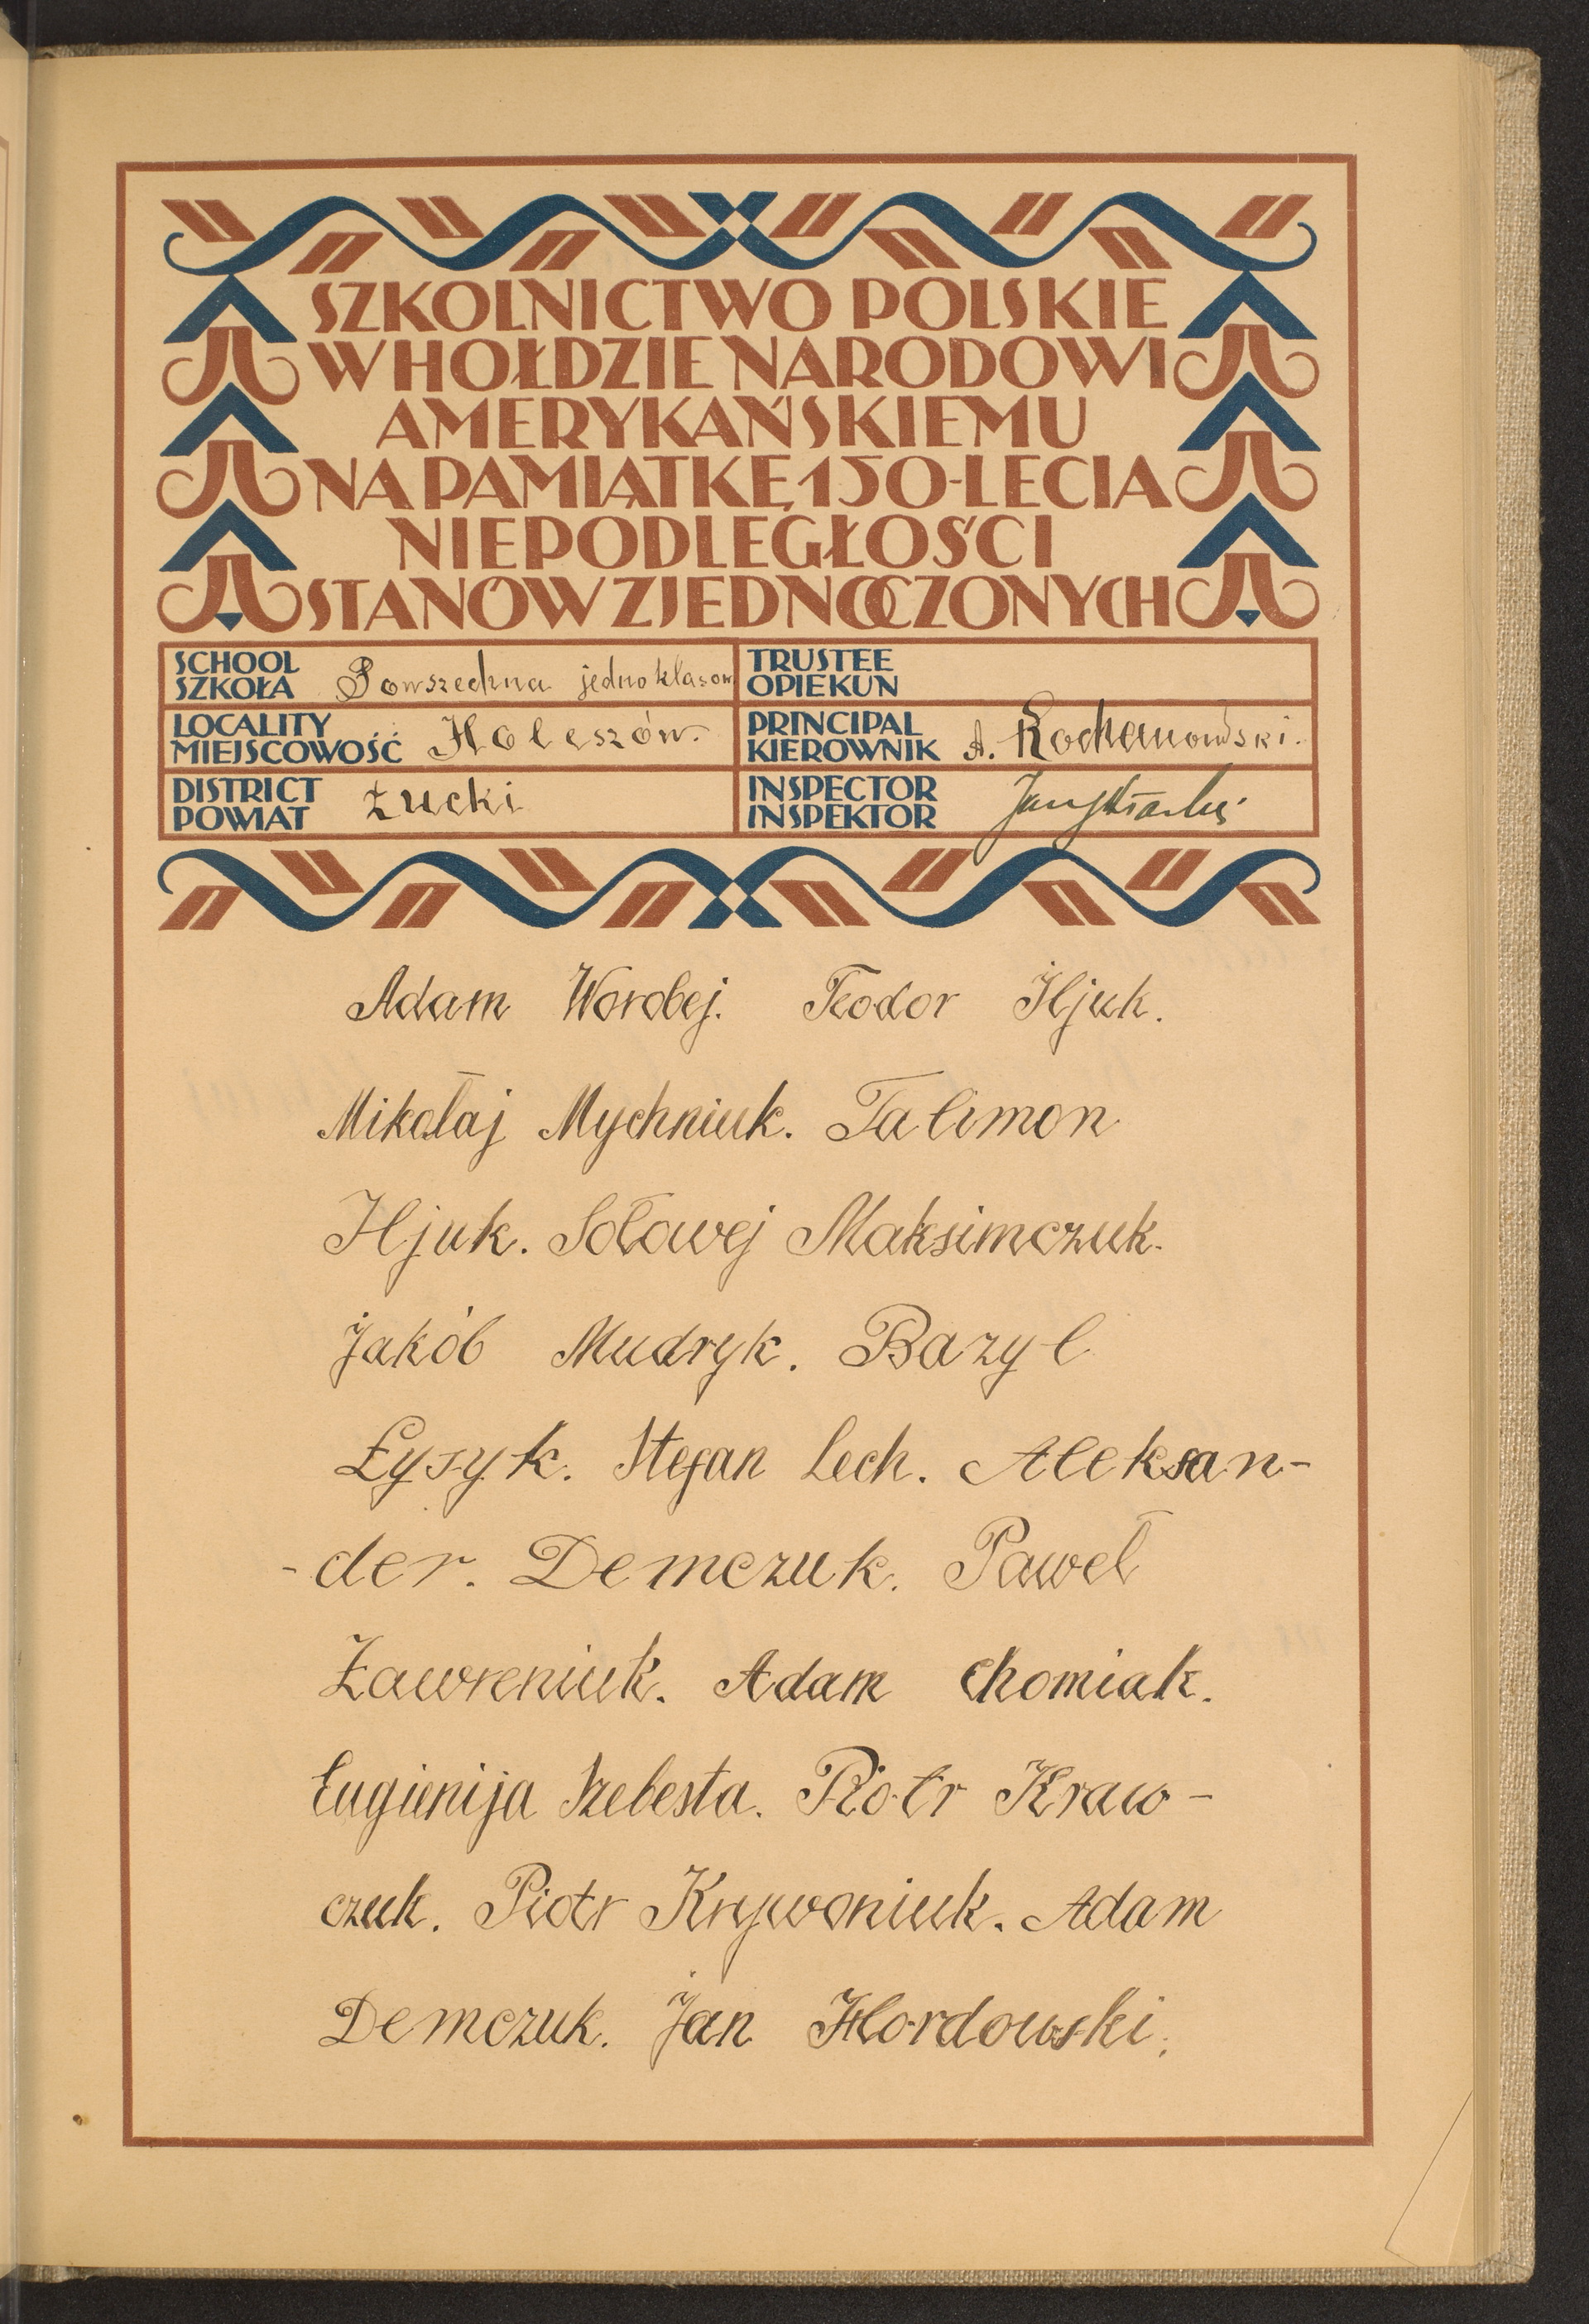 SZKOLNICTWO POLSKIE
W HOŁDZIE NARODOWI
AMERYKAŃSKIEMU
NA PAMIĄTKĘ 150-LECIA
NIEPODLEGŁOŚCI
STANÓW ZJEDNOCZONYCH
SCHOOL
SZKOŁA Powszechna jednoklasow
TRUSTEE
OPIEKUN
LOCALITY
MIEJSCOWOŚĆ Holeszów.
PRINCIPAL
KIEROWNIK A. Kochanowski.
DISTRICT
POWIAT Łucki
INSPECTOR
INSPEKTOR
Adam Worobej. Teodor Iljuk.
Mikołaj Mychniuk. Talimon
Iljuk. Soławej Maksimczuk.
Jakób Mudryk. Bazyl
Łysyk. Stefan Lech. Aleksan-
-der. Demczuk. Paweł
Ławreniuk. Adam Chomiak.
Eugienija Szebesta. Piotr Kraw-
czuk. Piotr Krywoniuk. Adam
Demczuk. Jan Hordowski.